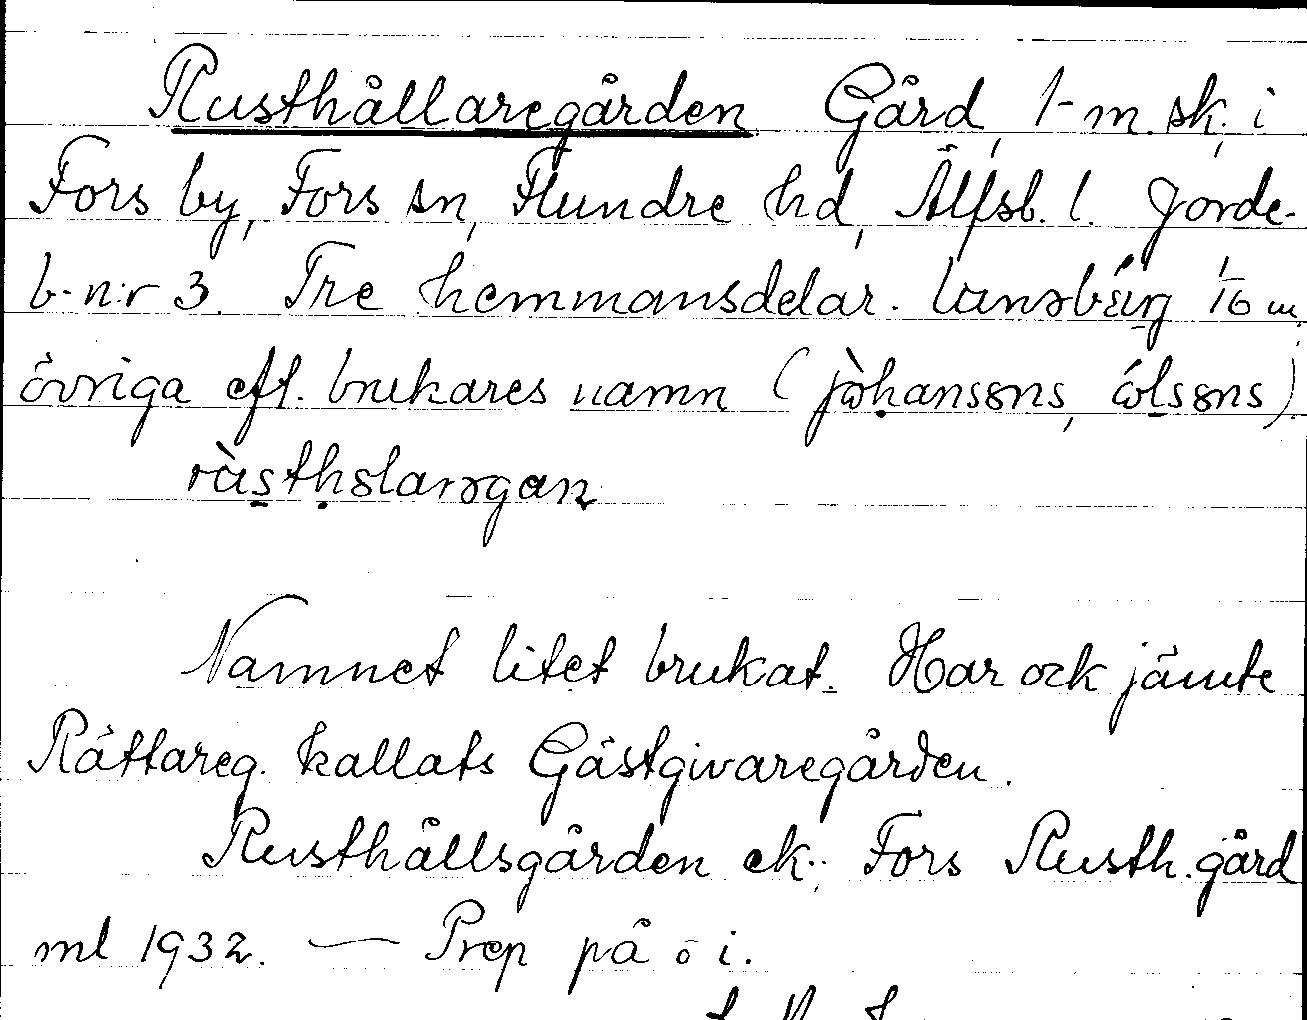 Rusthållaregården Gård, 1-m. sk. i
Fors by, Fors sn, Flundre hd, Älfsb. l. Jorde-
b-n:r 3. Tre hemmansdelar. 1/16 m,
övriga eft. brukares namn (jòhanssns, ólssns)

Namnet litet brukat. Har ock jämte
Rättareg. kallats Gästgivaregården.
Rusthållsgården ek.; Fors Rusth.gård
ml 1932. — Prep på o i.